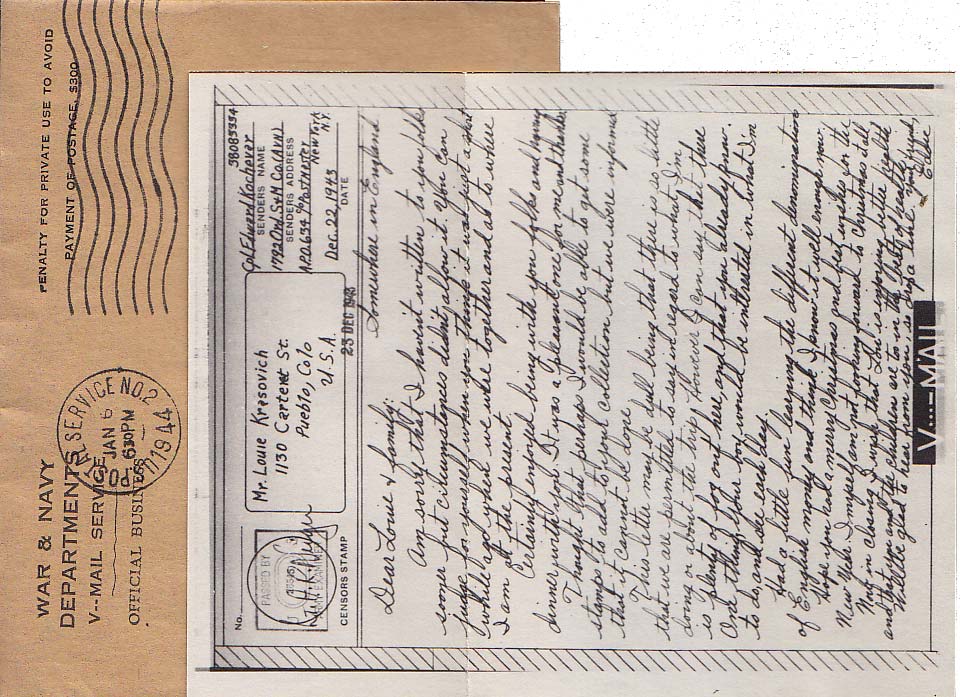 WAR & NAVY
DEPARTMENTS
V--MAIL SERVICE
OFFICIAL BUSINESS
SERVICE NO. 2
JAN 6
630PM
1944
PENALTY FOR PRIVATE USE TO AVOID
PAYMENT OF POSTAGE, $300
No.
PASSED BY
ARMY EXAMINER
CENSORS STAMP
Mr. Louie Krasovich
1130 Carteret St.
Pueblo, Colo
U.S.A.
23 DEC 1943
38085334
Cpl Edward Kochovar
SENDERS NAME
1792 Ord. S+M Co. (AVN)
SENDERS ADDRESS
APO 639 % Postmaster
New York
N.Y.
Dec. 22, 1943
DATE
Somewhere in England
Dear Louie & family:
Am sorry that I havent written to you folks
sooner but circumstances didnt allow it. You can
judge for yourself when you think it was just a short
while ago when we where together and as to where
I am at the present.
Certainly enjoyed being with you folks and having
dinner with you. It was a pleasant one for me and thanks.
Thought that perhaps I would be able to get some
stamps to add to your collection but we were informed
that it cannot be done.
This letter may be dull being that there is so little
that we are permitted to say in regard to what I'm
doing or about the trip. However I can say that there
is plenty of fog out here, and that you already know.
One thing I'm sure you would be interested in what I'm
to do, and do each day.
Had a little fun learning the different denomination
of English money and think I know it well enough now.
Hope you had a merry Christmas and best wishes for the
New Year. I myself am not looking forward to Christmas at all.
Now in closing I wish that Lou is improving better health
and that you and the children are in the best of health.
Will be glad to hear from you so drop a line. Your friend,
Eddie
V···-MAIL